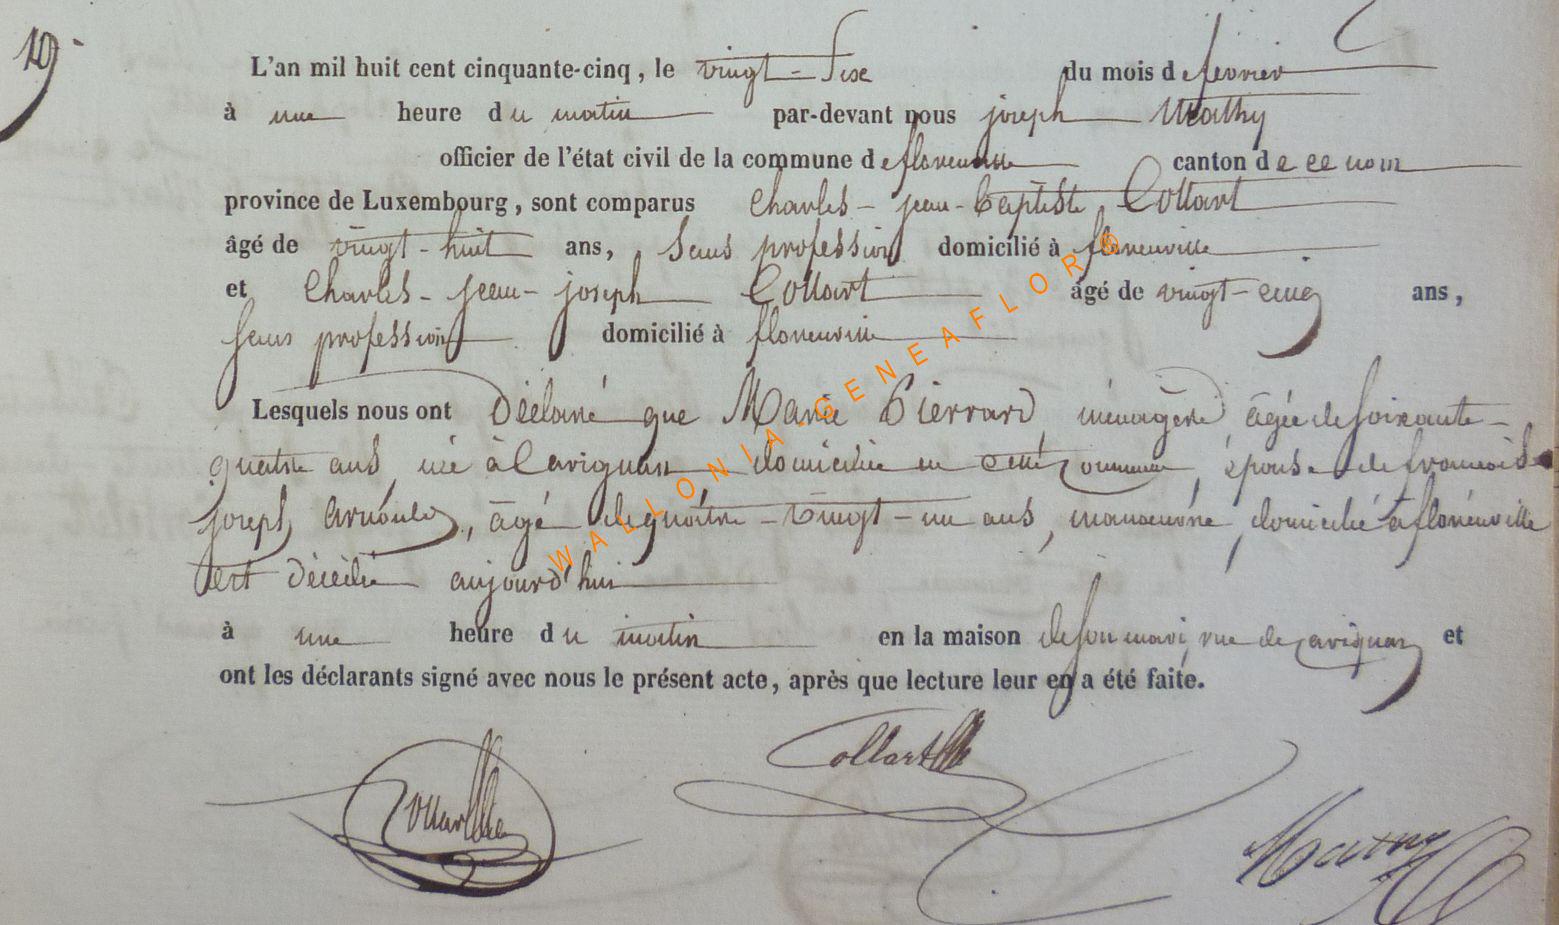 19
L'an mil huit cent cinquante-cinq, le vingt-six du mois de fevrier
à une heure du matin par-devant nous joseph Mathy
officier de l'état civil de la commune de florenville canton de ce nom
province de Luxembourg, sont comparus Charles-jean-baptiste Collart
âgé de vingt-huit ans, sans profession domicilié à florenville
et Charles-jean-joseph Collart âgé de vingt-cinq ans,
sans profession domicilié à florenville
Lesquels nous ont Déclaré que Marie Pierrard, ménagère, âgée de soixante-
quatre ans, née à domiciliée en cette commune, épouse de francois
joseph arnould, âgé de quatre-vingt-un ans, manoeuvre, domicilié à florenville
est décédée aujourd'hui
à une heure du matin en la maison de son mari, rue de et
ont les déclarants signé avec nous le présent acte, après que lecture leur en a été faite.
Collart
Collart
Mathy
WALLONIA-GENEAFLOR®